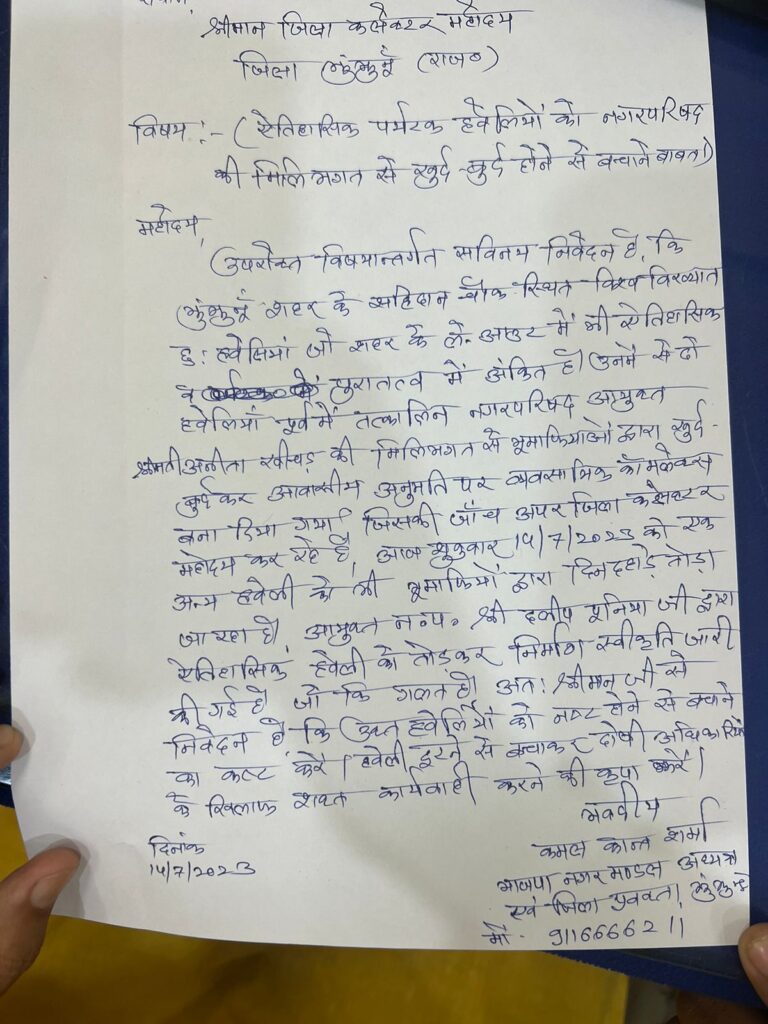 श्रीमान जिला कलैकटर महोदय
जिला झुंझुनूँ (राज०)
विषय :- (ऐतिहासिक पर्यटक हवेलियों को नगरपरिषद
की मिलिभगत से खुर्द-बुर्द होने से बचाने बाबत)
महोदय,
उपरोक्त विषयान्तर्गत सविनय निवेदन है, कि
झुंझुनूँ शहर के शहिदान चौक स्थित विश्व विख्यात
छ: हवेलियां जो शहर के ले-आउट में भी ऐतिहासिक
व पुरातत्व में अंकित है। उनमें से दो
हवेलियाँ पूर्व में तत्कालिन नगरपरिषद आयुक्त
श्रीमती अनीता खीचड़ की मिलिभगत से भूमाफियाओं द्वारा खुर्द-
बुर्द कर आवासीय अनुमति पर व्यवसायिक कॉमप्लेक्स
बना दिया गया जिसकी जाँच अपर जिला कलेक्टर
महोदय कर रहे है, आज शुक्रवार 14/7/2023 को एक
अन्य हवेली को भी भूमाफियों द्वारा दिनदहाड़े तोड़ा
जा रहा है। आयुक्त न०प० श्री दलीप पूनिया जी द्वारा
ऐतिहासिक हवेली को तोड़कर निर्माण स्वीकृति जारी
की गई है जो कि गलत है। अत: श्रीमान जी से
निवेदन है कि उक्त हवेलियों को नष्ट होने से बचाने
का कष्ट करें। हवेली टुटने से बचाकर दोषी अधिकारियों
के खिलाफ शख्त कार्यवाही करने की कृपा करें।
भवदीय
कमल कान्त शर्मा
दिनांक
14/7/2023
भाजपा नगर मण्डल अध्यक्ष
एवं जिला प्रवक्ता, झुंझुनूँ
मो. 9116666211